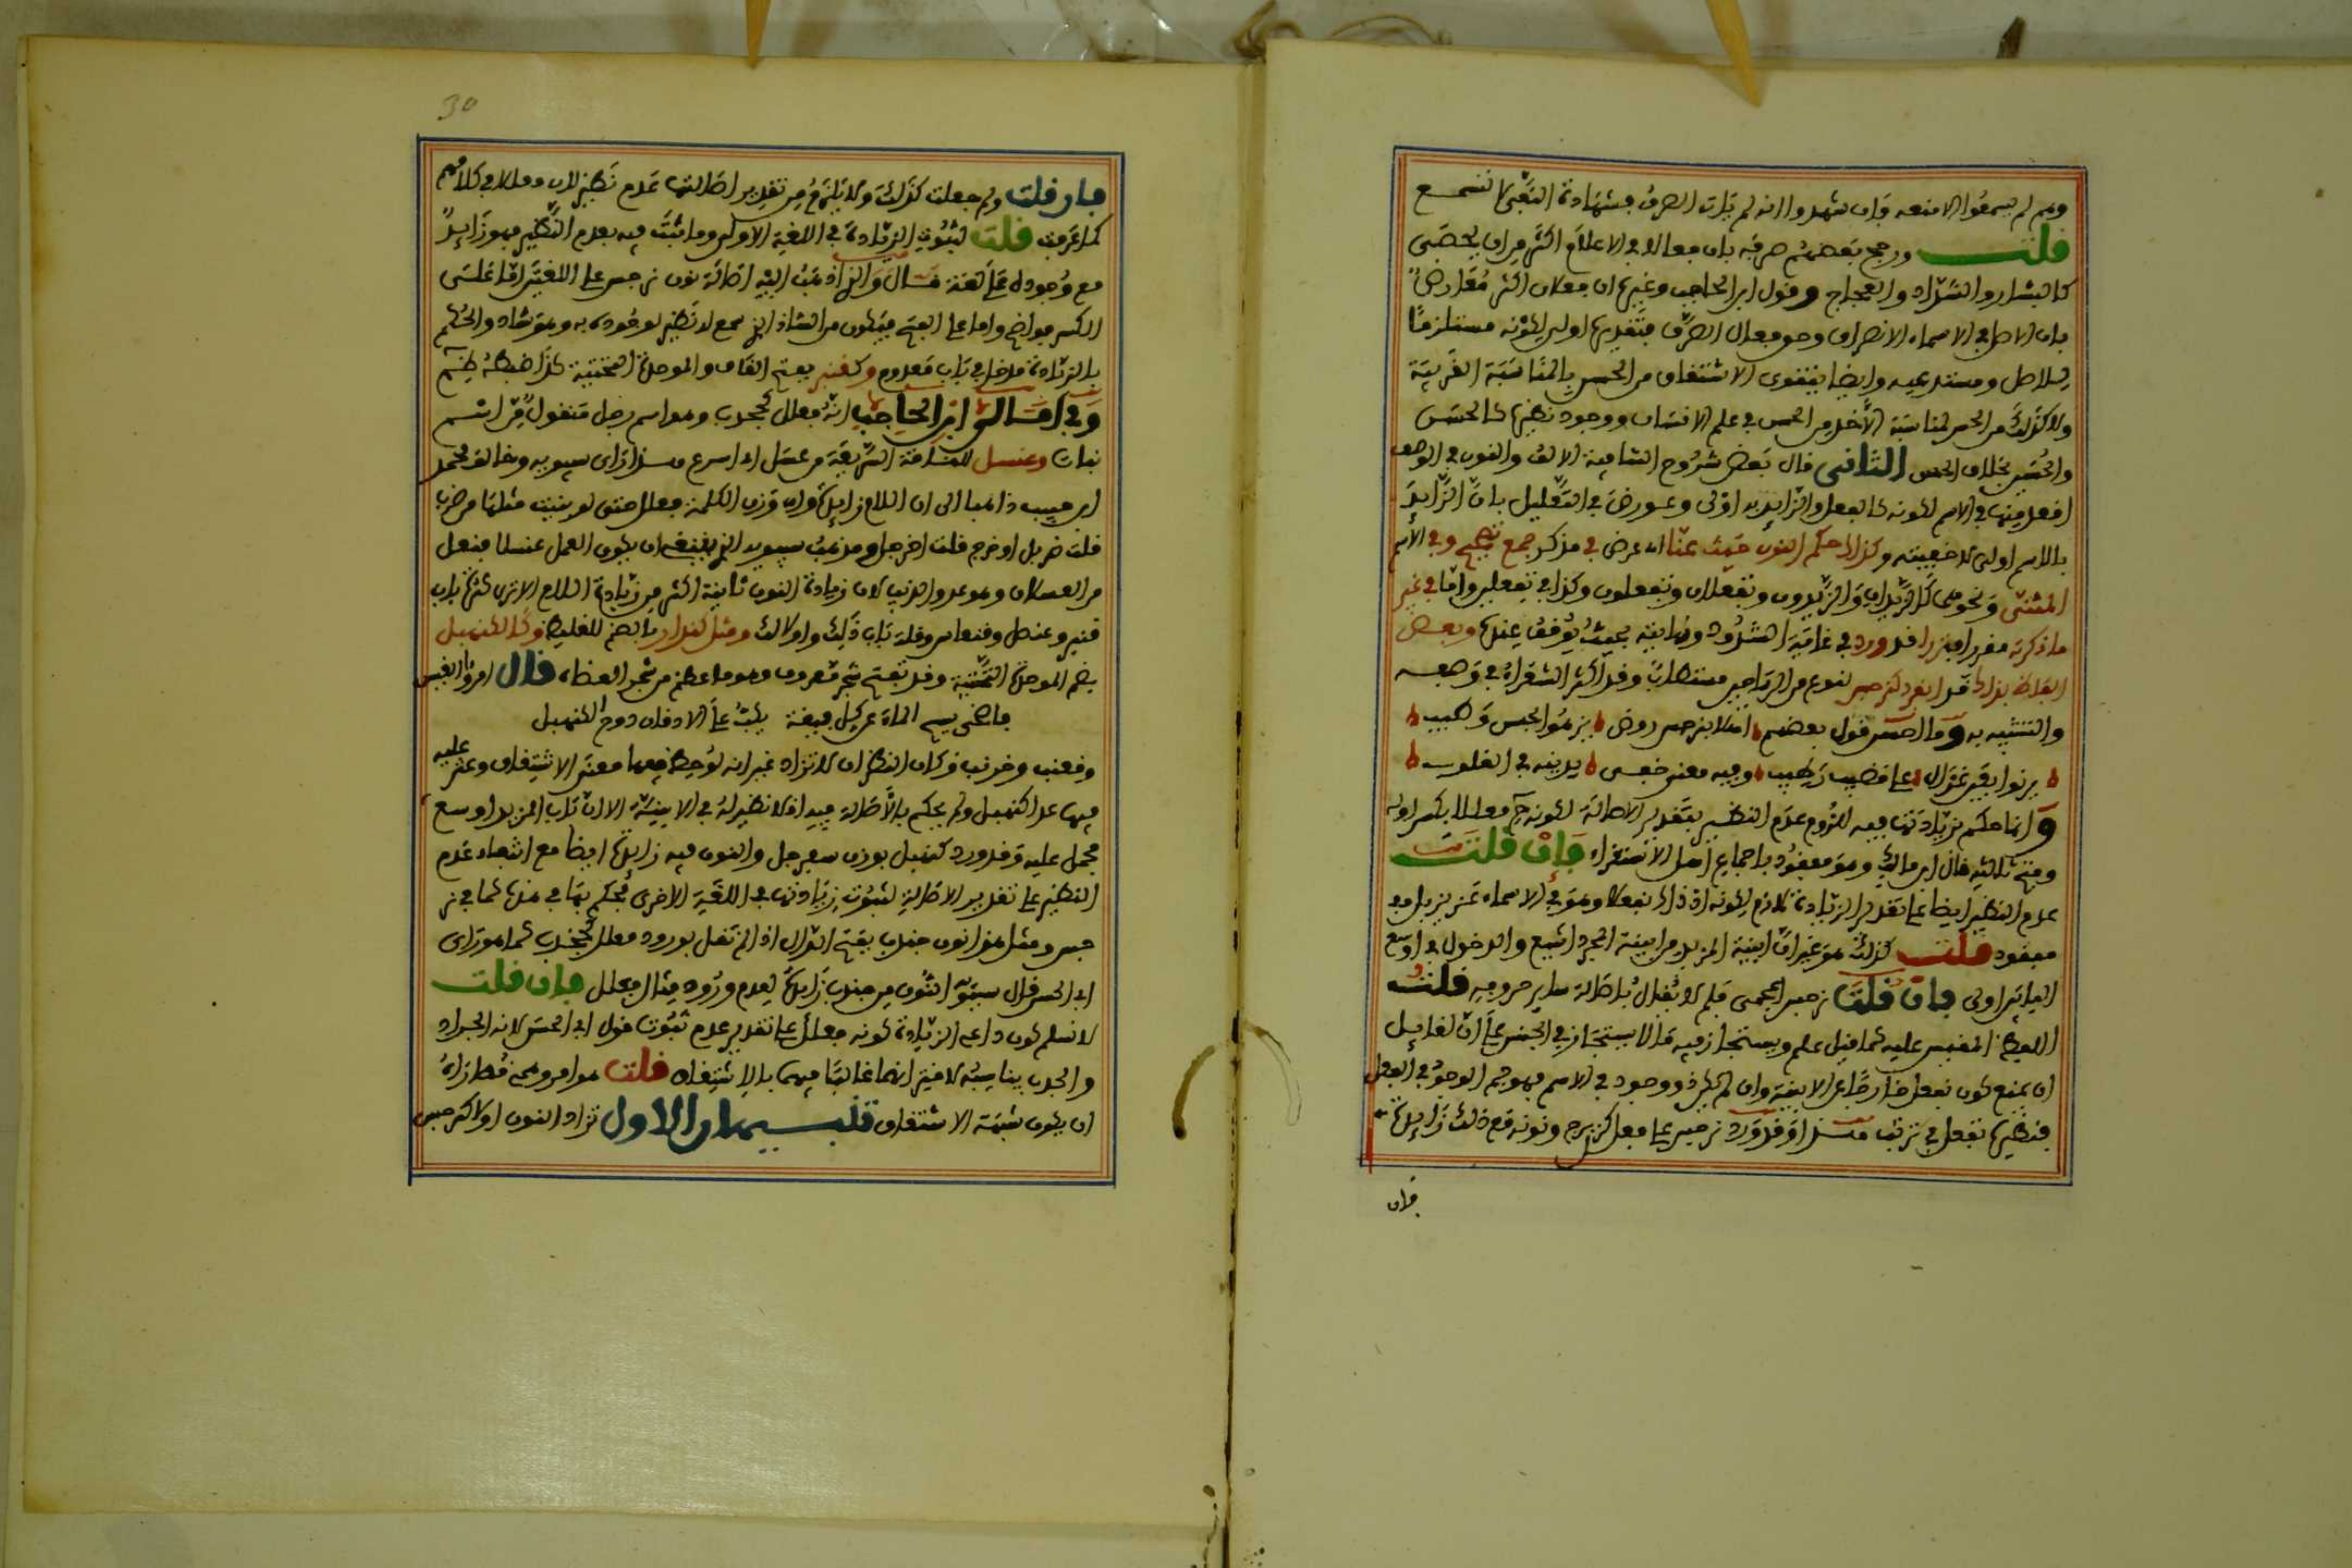 وهم لم يسمعوا الا منعه وان شهدوا انه لم يات الصرف فشهادة النفي لا تسمع
قلت ورجح بعضهم صرفه بان فعالا في الاعلام اكثر من ان يحصى
كالبشار والشداد والعجاج وقول ابن الحاجب وغيره ان فعلان اكثر معارض
بان الاصل في الاسماء الانصراف وحق فعال الصرف فتقديره اولى لكونه مستلزما
للاصل ومستدعيه وايضا يتقوى الاشتقاق من الحسن بالمناسبة القريبة
ولا كذلك من الحس لمناسبة الاخذ من الحس في علم الانسان ووجود نظيره كالحسن
والحسين بخلاف الحس الثاني قال بعض شروح الشافية الالف والنون في الوصف
افعل منها في الاسم لكونه كالفعل والزايد به اولى وعورض في التعليل بان الزايد
بالاسم اولى لاخفيته وكذلك حكم النون حيث عنا ان عرض في مذكر جمع صحيح وفي الاسم
المثنى ونحوهما كالزيدان والزيدون وتفعلان وتفعلون وكذا في تفعلين واما في غير
ما ذكرته مفردا فنزرا قد ورد في غاية الشذوذ ونهايته بحيث يوقف عندها وبعض
الغلط بذلك قد انفرد كنرجس لنوع من الرياحين مستطاب وقد اكثر الشعراء في وصفه
والتشبيه به وما احسن قول بعضهم املا بنرجس روض يزهو بحسن وطيب
يرنو بعين غزال على قضيب رطيب وفيه معنى خفى يدينه في القلوب
وانما حكم بزيادتها فيه للزوم عدم النظير بتقدير الاصالة لكونه فعللا بكسر اوله
وفتح ثالثه قال ابن مالك وهو مفقود باجماع اهل الاستقراء فإن قلت
عدم النظير ايضا على تقدير الزيادة لازم لكونه اذ ذاك نفعلا وهو في الاسماء عزيز بل
مفقود قلت كذلك هو غير ان ابنية المزيد من ابنية المجرد اشيع والدخول في اوسع
البابين اولى فان قلت نرجس اعجمي فلم لا يقال باصالة ساير حروفه قلت
اللفظ المقيس عليه كما قيل علم ويستجاز فيه ما لا يستجاز في الجنس على ان لقايل
ان يمنع كون نفعل خارجا عن الابنية وان لم يكن ذو وجود في الاسم فهو جم الوجود في الفعل
فنظيرها نفعل في نرتب مسند او قد ورد نرجس على فعلل كزبرج ونونه مع ذلك زايدة
فإن
30
فإن قلت ولم جعلت كذلك ولا يلزم من تقدير اصالتها عدم نظير لان فعللا في كلامهم
كما عرفت قلت لثبوت الزيادة في اللغة الاولى وما ثبت فيه بعدم النظير فهو زايد
مع وجوده على لغة قال والذي اذهب اليه اصالة نون نرجس على اللغتين اما على
الكسر فواضح واما على الفتح فيكون من الشاذ الذي سمع لا نظير لوجوده به وهو شاذ والحكم
بالزيادة مدخل في باب معدوم وكقنبر بفتح القاف والموحدة التحتية كذا ضبطه
وفي امالي ابن الحاجب انه فعلل كجحدب وهو اسم رجل منقول من اسم
نبات وعنسل للناقة السريعة من عسل اي اسرع هذا راي سيبويه وخالف محمد
ابن حبيب ذاهبا الى ان اللام زايدة وان وزن الكلمة فعلل حتى لو بنيت مثلها من ضرب
قلت ضربل او خرج قلت خرجل ومذهب سيبويه الذي يقتضيه ان يكون العمل عنسلا فنعل
من العسلان وهو عدو الذيب لان زيادة النون ثانية اكثر من زيادة اللام الا ترى كثرة باب
قنبر وعنصل وقنعاس وقلة باب ذلك واولالك ومثل كندر بالضم للغليظ وكالكنهبل
بضم الموحدة التحتية وقد تفتح شجر معروف وهو ما عظم من شجر العضاه قال امرؤ القيس
فاضحى يسح الماء عن كل فيقة يكب على الاذقان دوح الكنهبل
وقعنب وخرنب وكان النظر ان لا تزاد غير انه لوحظ فيهما معنى الاشتقاق وعثر عليه
فيها عدا كنهبل ولم يحكم بالاصالة فيه اذ لا نظير له في الابنية الا ان باب المزيد اوسع
فحمل عليه وقد ورد كنهبل بوزن سفرجل والنون فيه زايدة ايضا مع انتفاء عدم
النظير على تقدير الاصالة لثبوت زيادتها في اللغة الاخرى فحكم بها في هذه كما في نر
جس ومثل هذا نون جندب بفتح الدال اذا لم نقل بورود فعلل كجخدب كما هو راي
ابي الحسن قال سيبويه النون من جندب زايدة لعدم ورود مثال فعلل فإن قلت
لا نسلم كون داعي الزيادة كونه فعلل على تقدير عدم ثبوت قول ابي الحسن لانه الجراد
والجدب يناسبه لاقترانهما غالبا فيهما بالاشتقاق قلت هو امر وهمي قصاراه
ان يكون شبهة الاشتقاق تنبيهان الاول تزاد النون اولا كنرجس